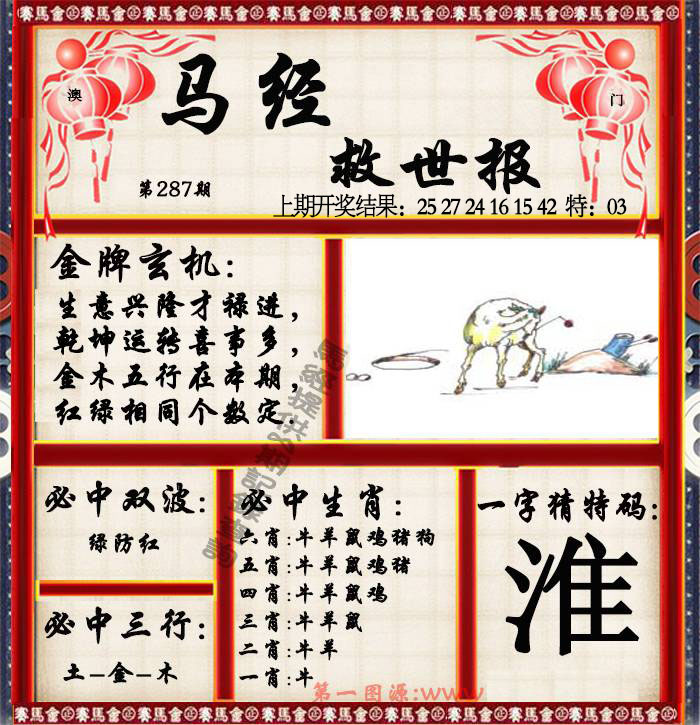 澳
门
马经
救世报
第287期
上期开奖结果：25 27 24 16 15 42 特：03
金牌玄机：
生意兴隆才禄进，
乾坤运转喜事多，
金木五行在本期，
红绿相同个数定.
必中双波：
绿防红
必中三行：
土-金-木
必中生肖：
六肖:牛羊鼠鸡猪狗
五肖:牛羊鼠鸡猪
四肖:牛羊鼠鸡
三肖:牛羊鼠
二肖:牛羊
一肖:牛
一字猜特码:
淮
第一图源:www